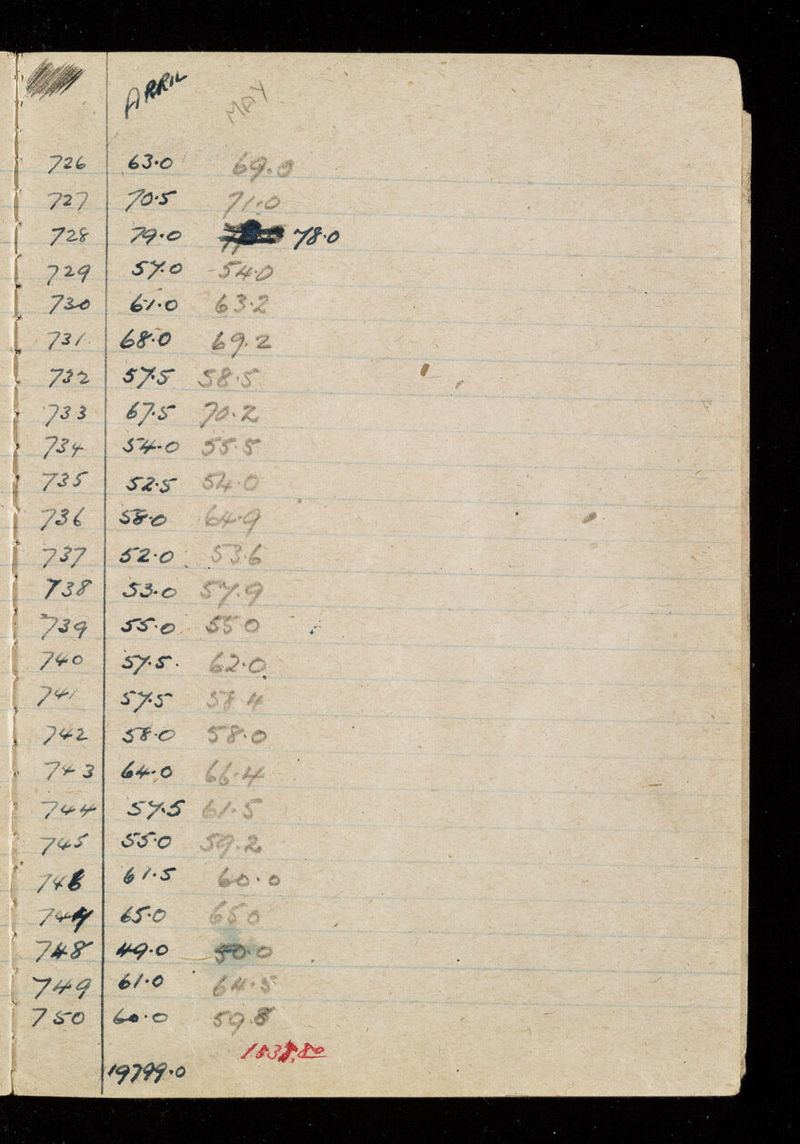 APRIL MAY
726 63.0 69.0
727 70.5 71.0
728 79.0 78.0
729 57.0 54.0
730 61.0 63.2
731 68.0 69.2
732 57.5 58.5
733 67.5 70.2
734 54.0 55.5
735 52.5 54.0
736 58.0 64.9
737 52.0 53.6
738 53.0 57.9
739 55.0 55 0
740 57.5. 62.0
741 57.5 58 4
742 58.0 58.0
743 64.0 66.4
744 57.5 61.5
745 55.0 59.2
746 61.5 60.0
747 65.0 65 0
748 49.0 50.0
749 61.0 64.5
750 60.0 59.8
1538.80
19799.0